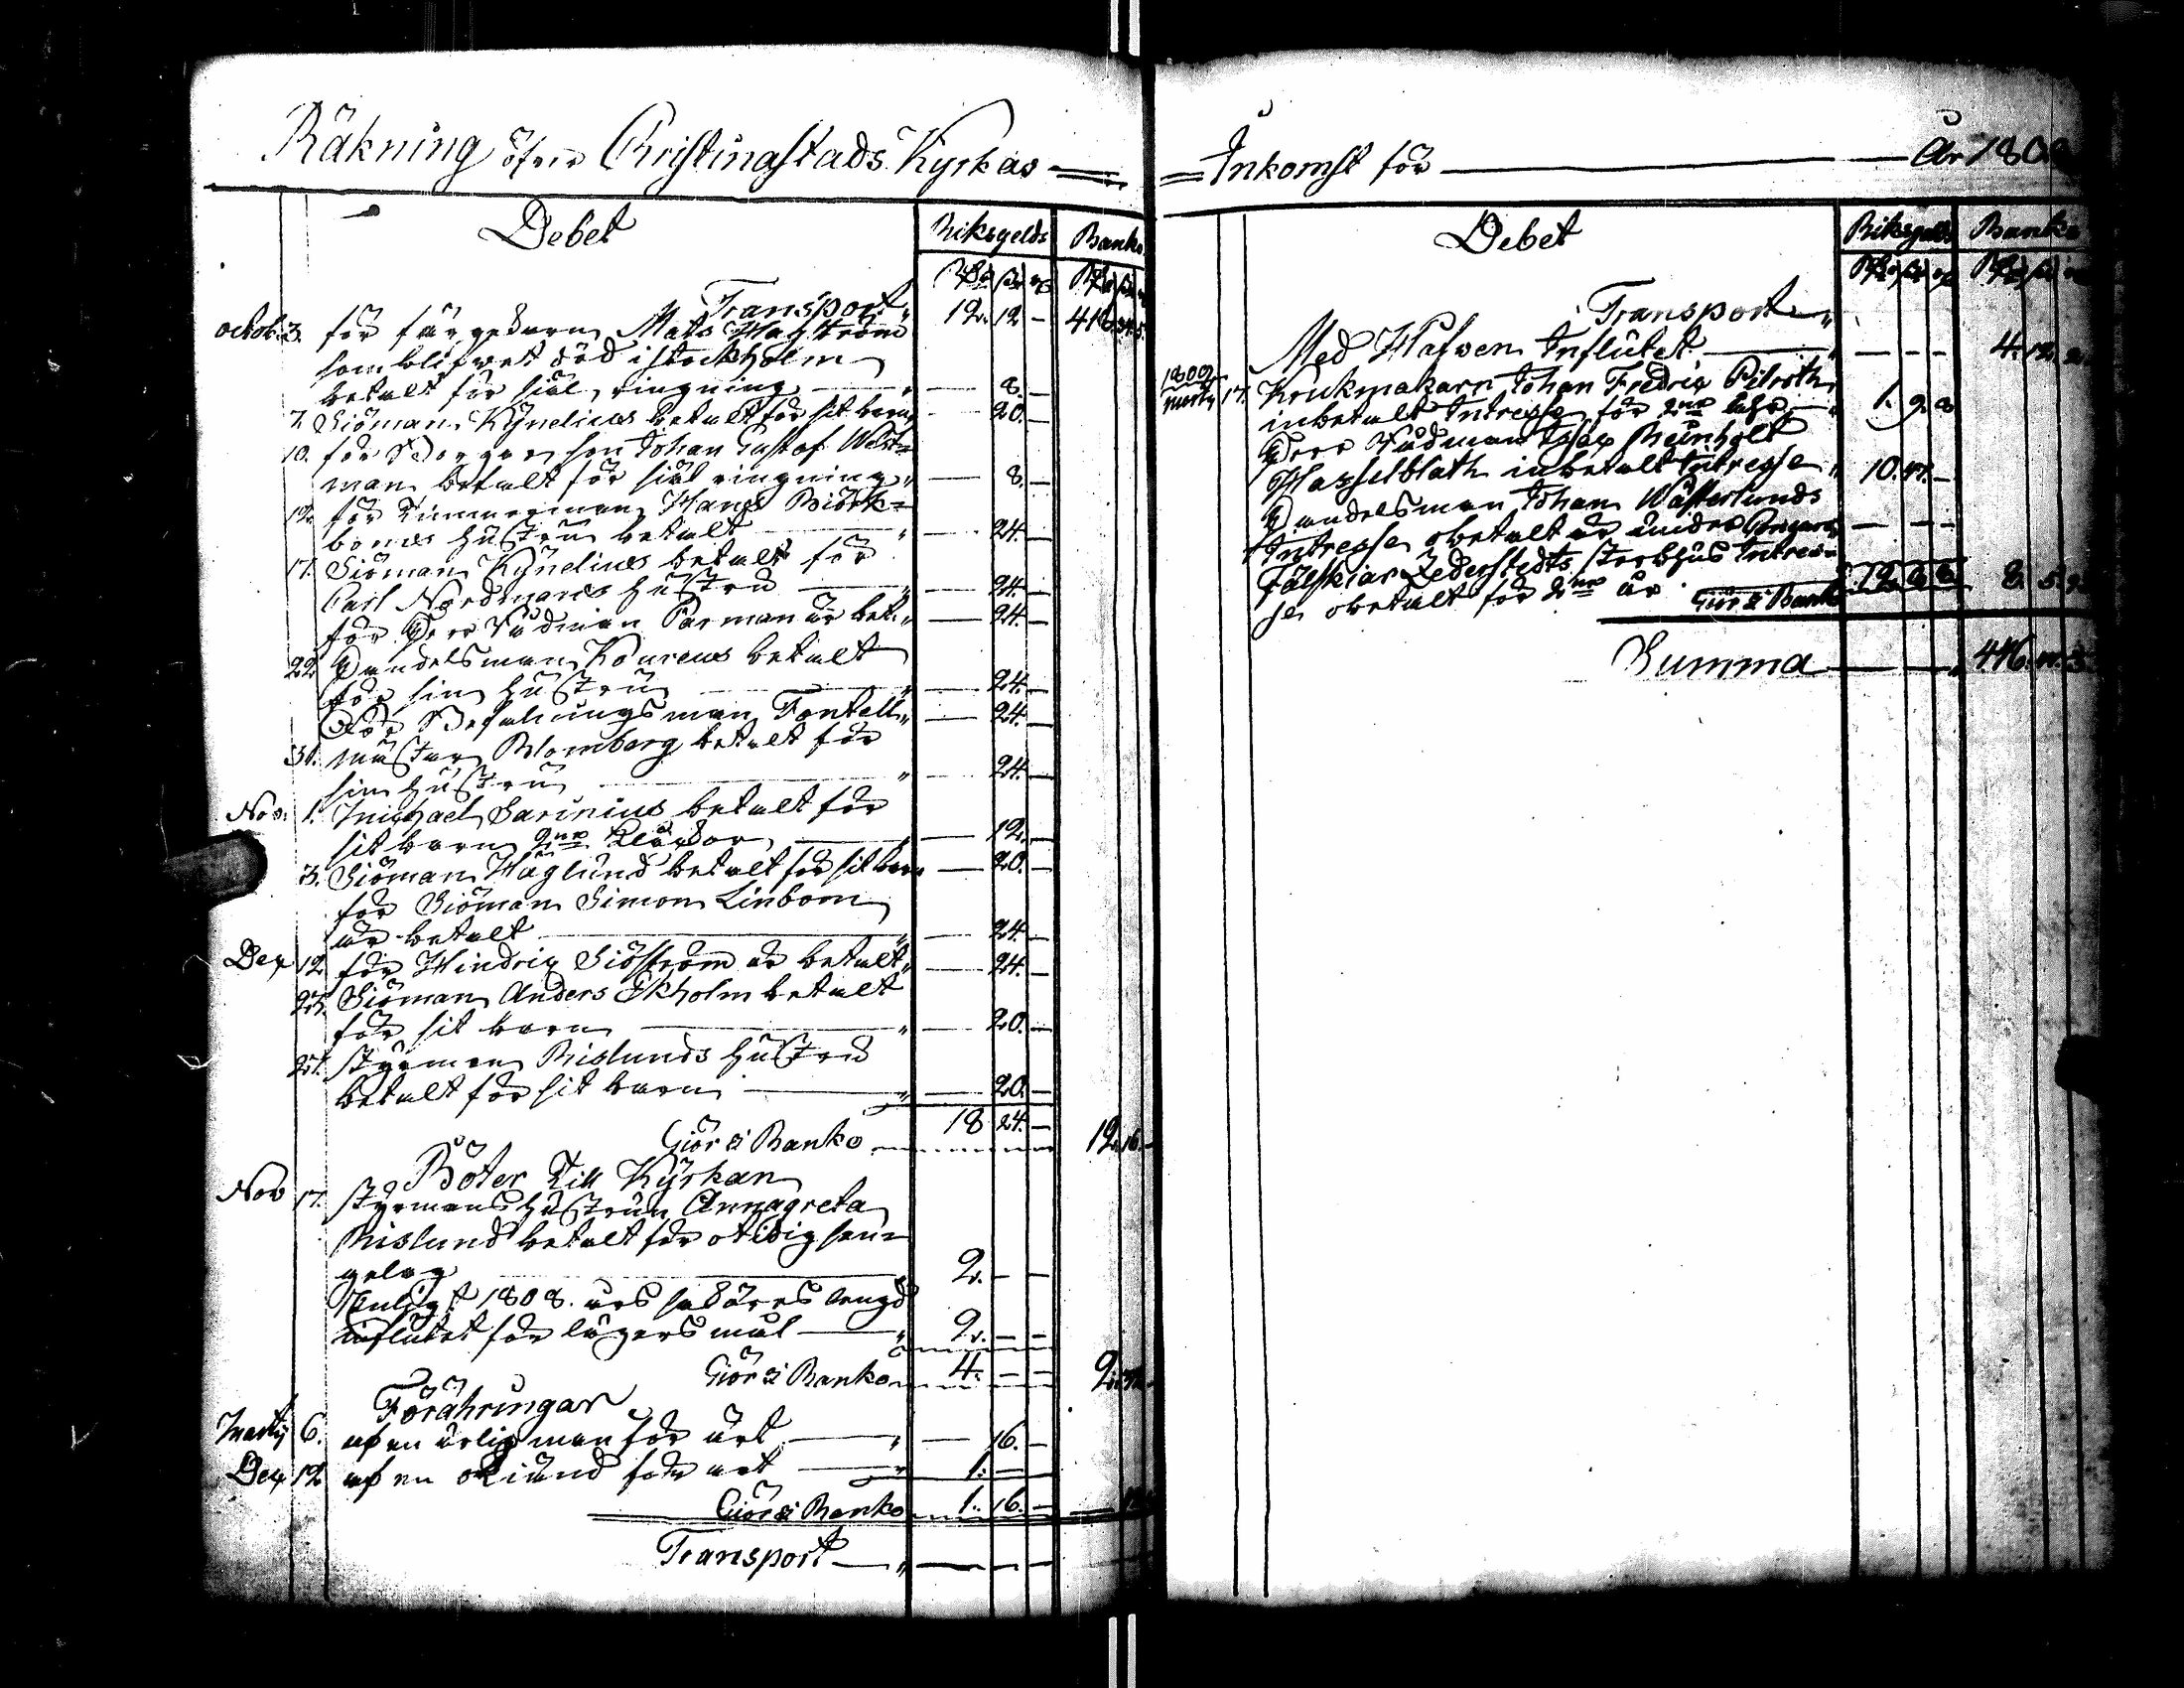 Räkning öfver Christinastads Kyrkas
Debet
Riksgelds Banko
Transport 12. 12 — 416
octob. 3. för färgedarn Mats Hagström
som blifvet död i stockholm
betalt för siäl ringning — 8. —
7. Siöman Kynelius betalt för sit barn — 20. —
10. för Borgaren Johan Gustaf West=
man betalt för siäl ringning — 8. —
12. för Timmerman Hans Biörk=
boms hustru betalt — 24. —
17. Siöman Kynelius betalt för
Carl Nordmans hustru — 24. —
för Herr Rådman Parman är bet. — 24. —
22. Handelsman Koureus betalt
för sin hustru — 24. —
För Befalningsman Fontell — 24. —
31. mästar Blomberg betalt för
sin hustru — 24. —
Nov. 1. Michael Sarinius betalt för
sit barn 2ne Klåckor — 12. —
3. Siöman Häglund betalt för sit barn — 20. —
för Siöman Simon Linbom
är betalt — 24. —
Dex 12 för Hindrix Siöström är betalt — 24. —
23. Siöman Anders Ekholm betalt
för sit barn — 20. —
27. styrman Rislunds hustru
betalt för sit barn — 20. —
18 24. —
Giör i Banko 12. 16. —
Böter Till Kyrkan
Nov 17. styrmans hustrun Annagreta
Rislund betalt för otidig sän=
gelag 2. — —
Enligt 1808. års saköres längd
influtet för lägersmål 2. — —
Giör i Banko 4. — — 2. 32.
Förähringar
Martij 6. af en ärlig man för ärt — 16. —
Dex 12 af en okiänd för ärt 1. —
Giör i Banko 1. 16. —
Transport
Inkomst för År 180
Debet
Riksgelds Banko
Transport
Med Hafven Influtet — — — 4. 12.
1809
Martij 17. Krukmakarn Johan Fredrix Pilroth
inbetalt Intresse för 2ne åhr 1. 9. 8
Herr Rådman Isax Reinholt
Hasselblath inbetalt Intresse 10. 47. —
Handelsman Johan Wästerlunds
Intresse obetalt är under — — —
Fälskiär Zederstedts sterbhus Intres=
se obetalt för 2ne år 12. 8 8
Giör i Bank 8. 5.
Summa 446.